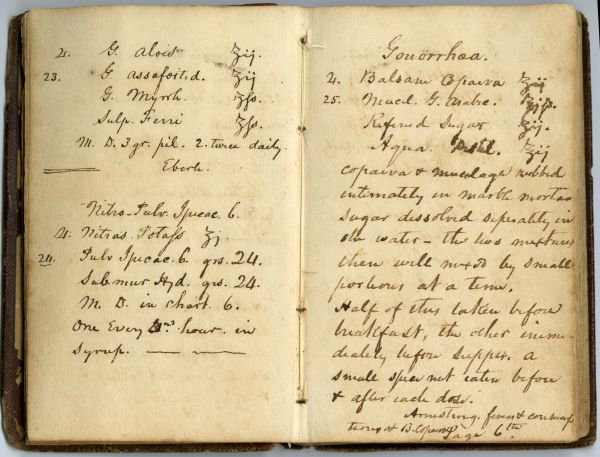 ℞. G. Aloes ʒij.
23. G. assafoitid. ʒij
G. Myrrh. ʒſs.
Sulp. Ferri ʒſs.
M. D. 3 gr. pil. 2. twice daily
Eberle.
Nitro-Pulv. Ipecac. 6.
℞. Nitras. Potass ʒj.
24. Pulv Ipecac. 6. grs. 24.
Submur Hyd. grs. 24.
M. D. in chart. 6.
One Every hour. in
Syrup.
Gonorrhœa.
℞. Balsam Copaiva ʒij
25. Mucil. G. Arabic. ʒijſs.
Refined Sugar ʒij.
Aqua ʒij
copaiva & mucilage rubbed
intimately in marble mortar
sugar dissolved seperately in
the water – the two mixtures
then well mixed by small
portions at a time.
Half of this taken before
breakfast, the other imme-
diately before supper. a
small spice nut eaten before
& after each dose.
Armstrong. fevers & consump
tions & B. Copaiva Page 6th.